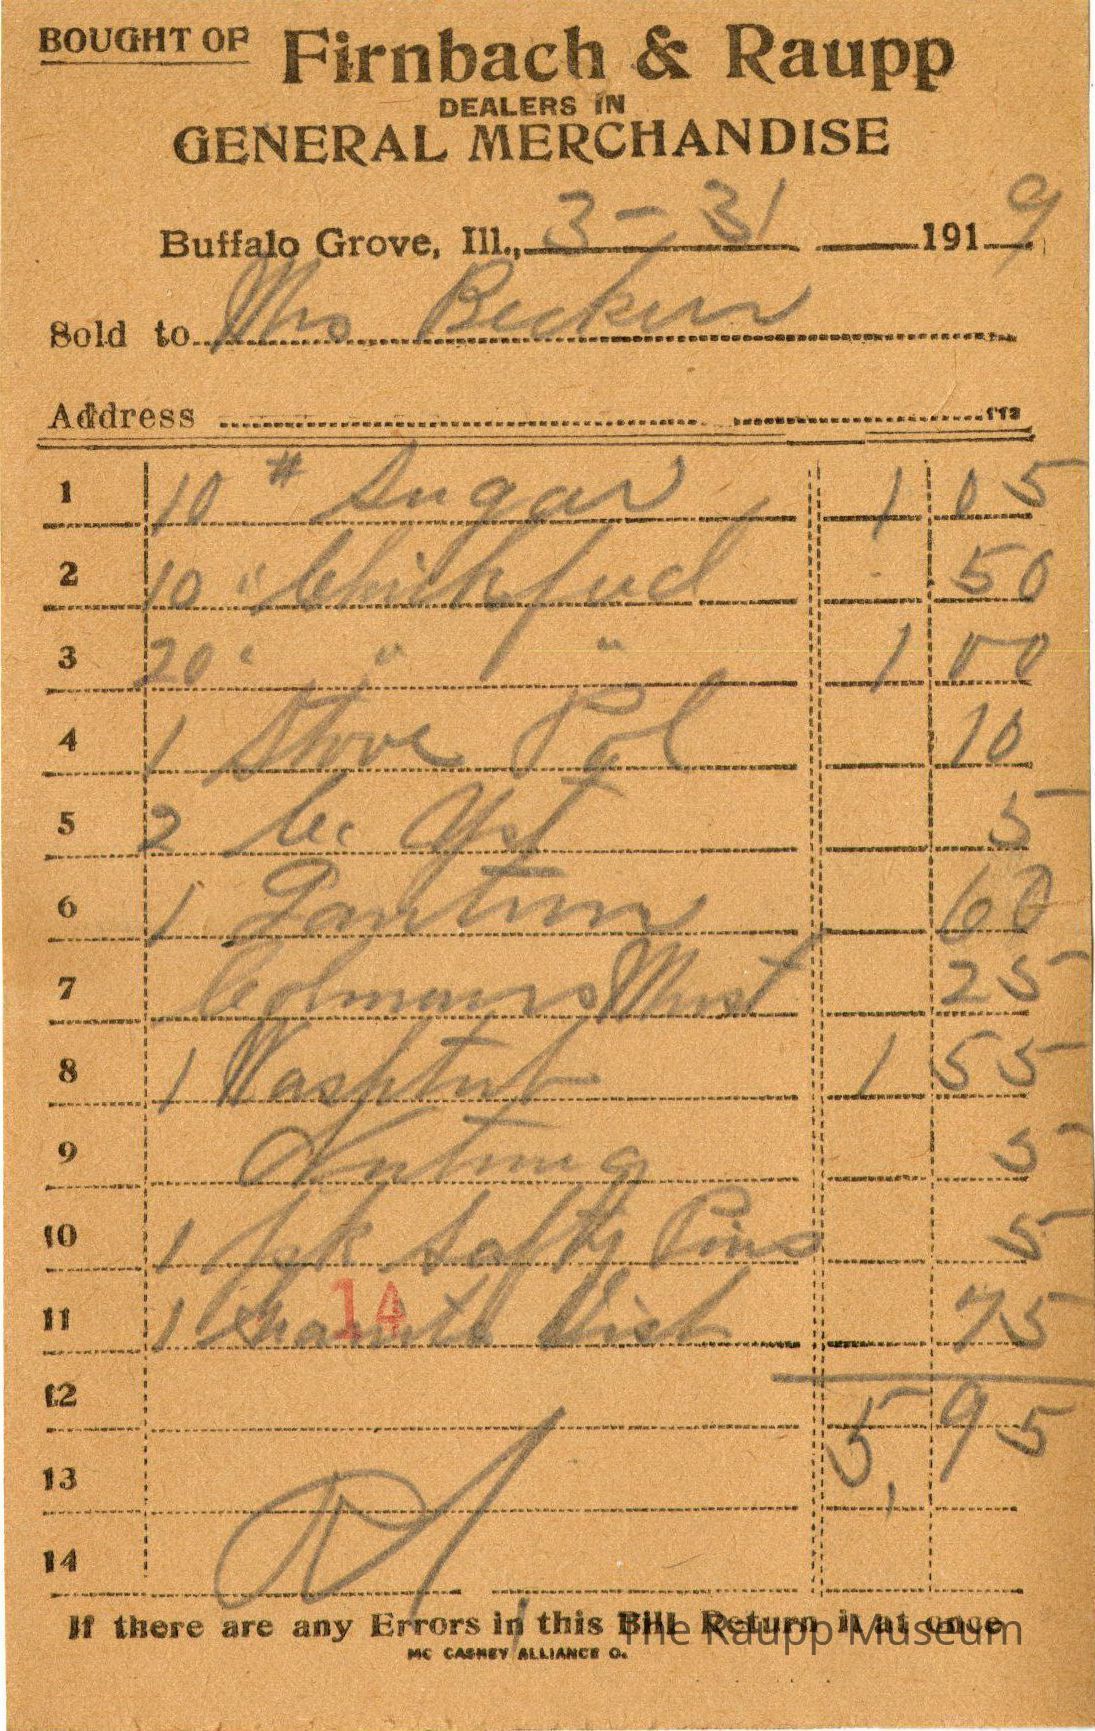 BOUGHT OF Firnbach & Raupp
DEALERS IN
GENERAL MERCHANDISE
Buffalo Grove, Ill., 3-31 1919
Sold to Mrs Becker
Address
1 10 # Sugar 1 05
2 10 " Chickfeed 50
3 20 " " " 1 00
4 1 Stove Pol 10
5 2 Yst 5
6 1 60
7 Colmans Must 25
8 1 Washtub 1 55
9 Nutmeg 5
10 1 pk Safty Pins 5
11 1 Granite Dish 75
14
12 5,95
13
14
If there are any Errors in this Bill Return it at once
MC CASKEY ALLIANCE O.
The Raupp Museum